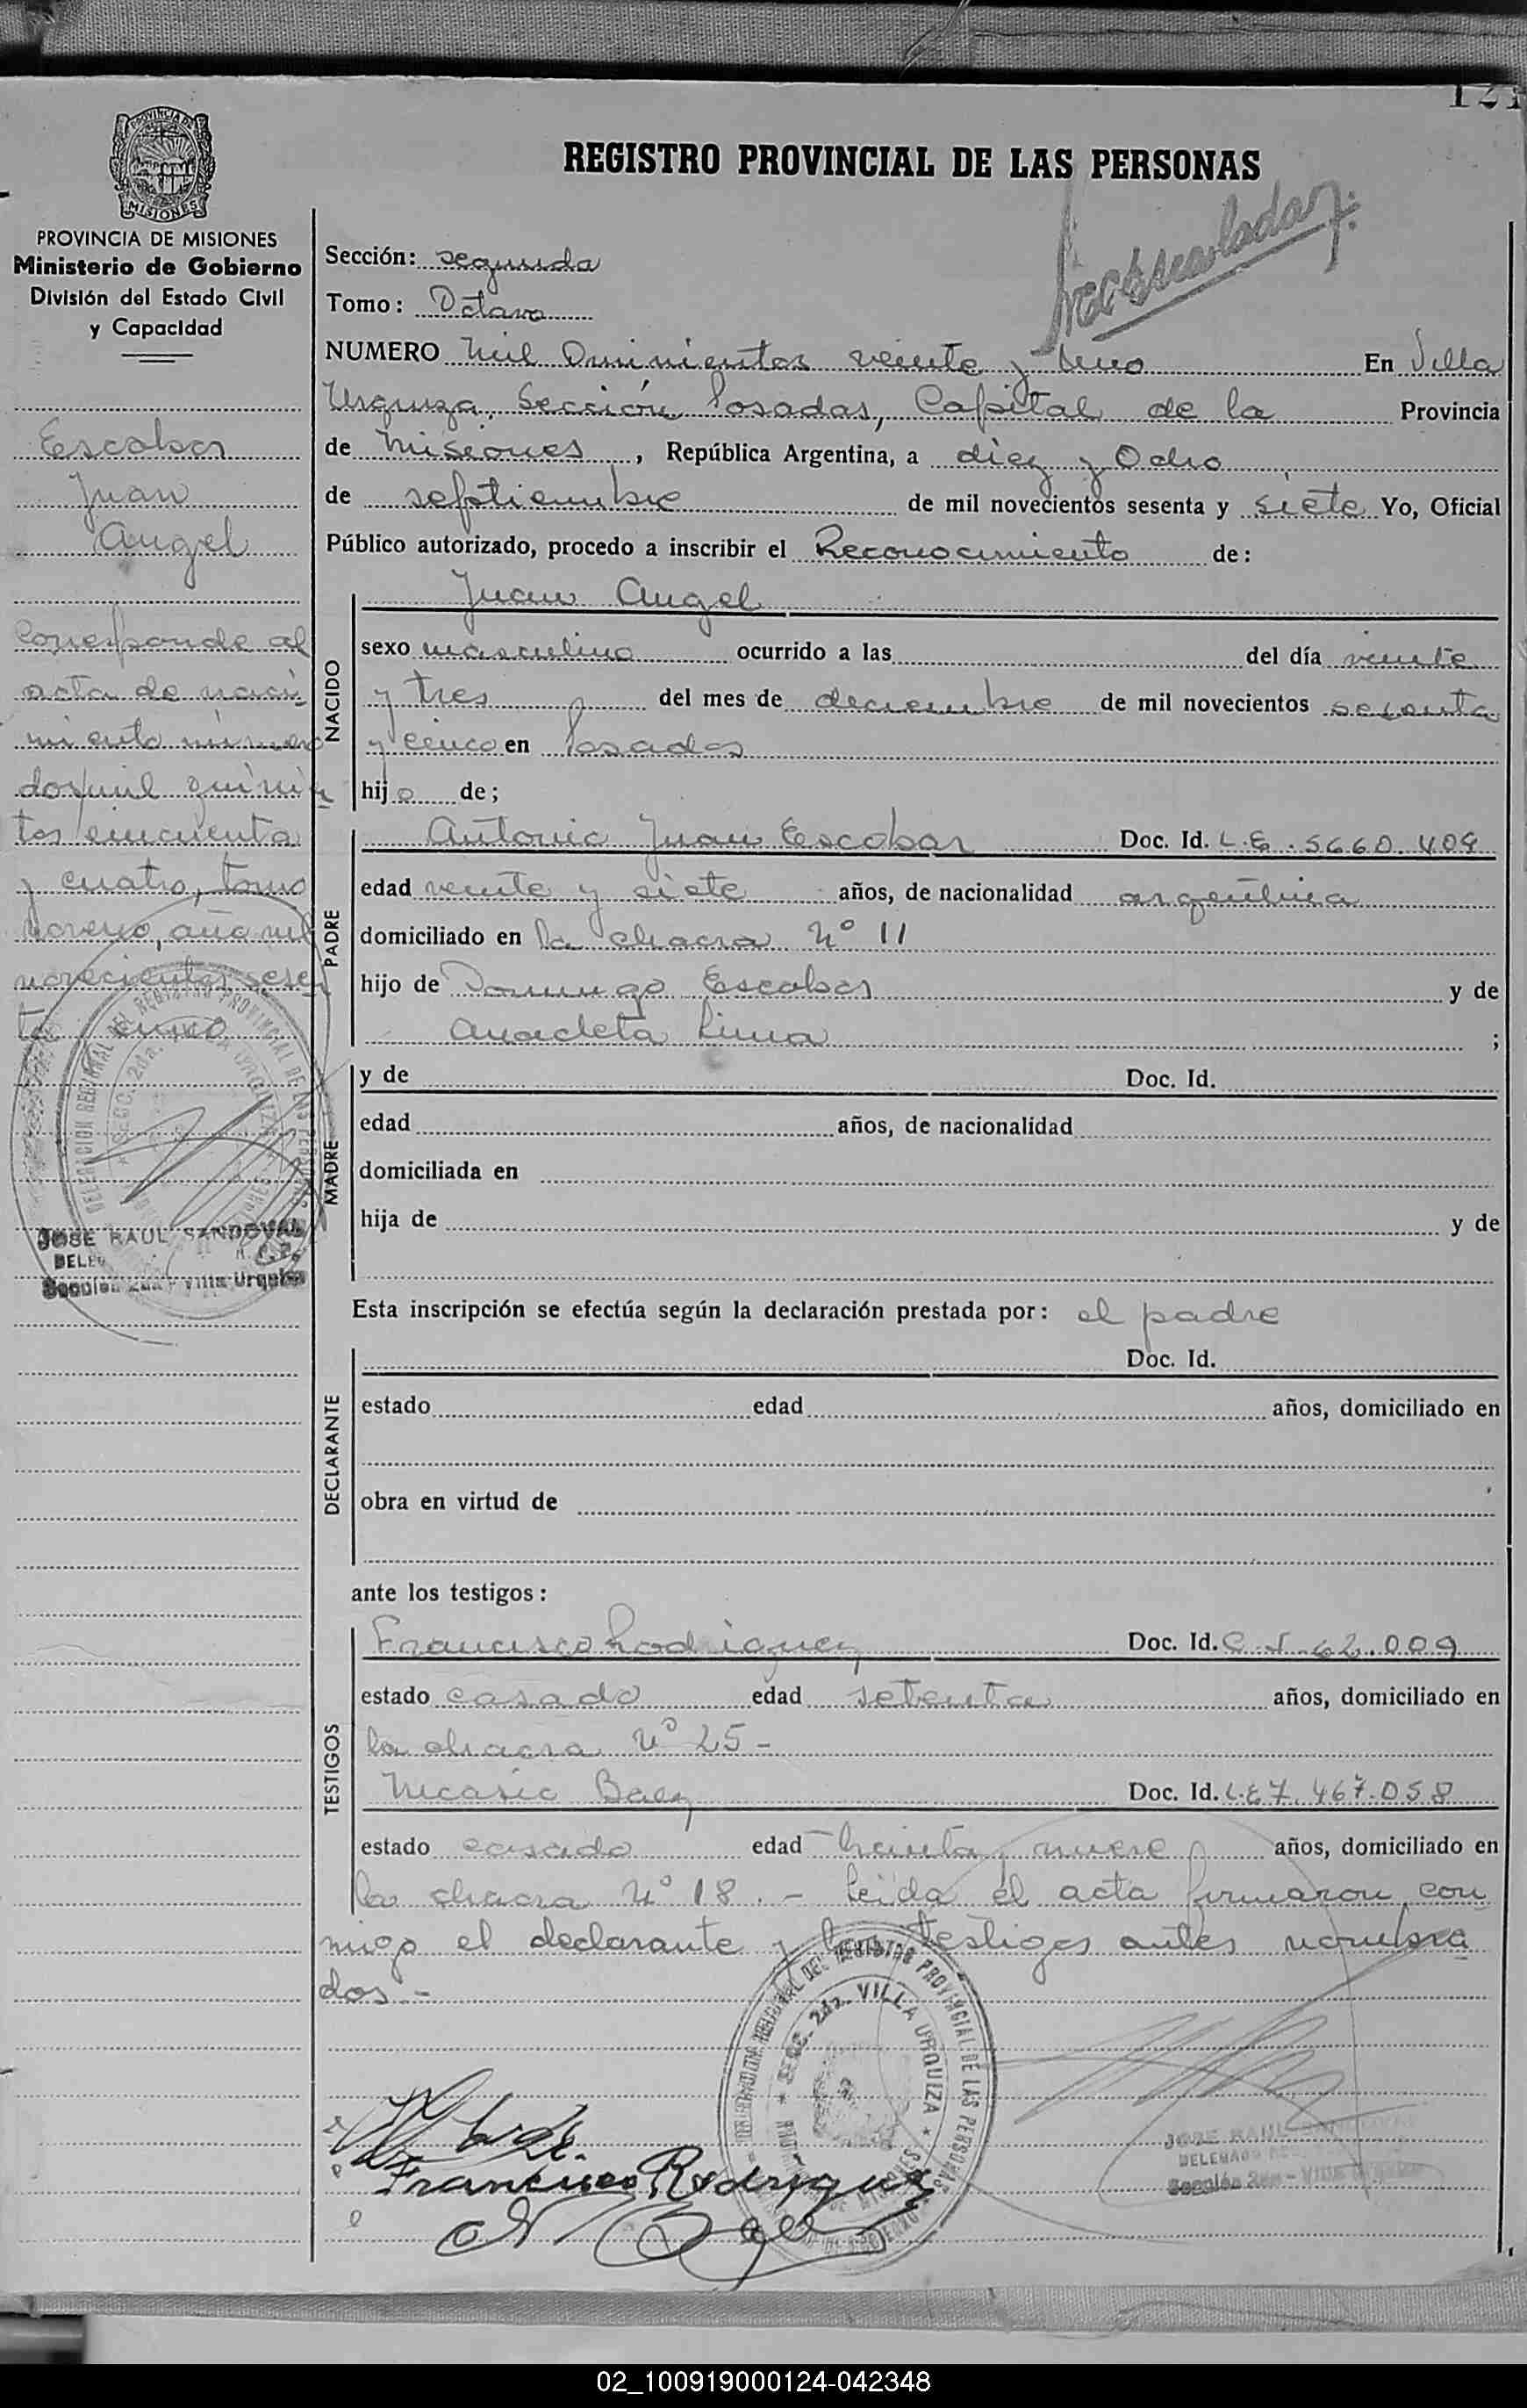 121
PROVINCIA DE MISIONES
REGISTRO PROVINCIAL DE LAS PERSONAS
PROVINCIA DE MISIONES
Ministerio de Gobierno
División del Estado Civil
y Capacidad
Escobar
Juan
Angel
Corresponde al
acta de naci-
miento número
dos mil quinien
tos cincuenta
y cuatro, tomo
noveno, año mil
novecientos sesen
ta cinco
JOSE RAUL SANDOVAL
Sección 2da. Villa Urquiza
Sección: segunda
Tomo: Octavo
NUMERO Mil Quinientos veinte y Uno En Villa
Urquiza, Sección Posadas, Capital de la Provincia
de Misiones, República Argentina, a diez y Ocho
de septiembre de mil novecientos sesenta y siete Yo, Oficial
Público autorizado, procedo a inscribir el Reconocimiento de:
Juan Angel
NACIDO
sexo masculino ocurrido a las del día veinte
y tres del mes de deciembre de mil novecientos sesenta
y cinco en Posadas
hijo de;
PADRE
Antonio Juan Escobar Doc. Id. L.E. 5660.409
edad veinte y siete años, de nacionalidad argentina
domiciliado en la chacra Nº 11
hijo de Domingo Escobar y de
Anacleta Lima ;
MADRE
y de Doc. Id.
edad años, de nacionalidad
domiciliada en
hija de y de
Esta inscripción se efectúa según la declaración prestada por: el padre
DECLARANTE
Doc. Id.
estado edad años, domiciliado en
obra en virtud de
ante los testigos:
TESTIGOS
Francisco Rodriguez Doc. Id. C.I. 62.009
estado casado edad setenta años, domiciliado en
la chacra Nº 25-
Nicasio Baez Doc. Id. L.E 7.467.058
estado casado edad treinta y nueve años, domiciliado en
la chacra Nº 18.- Leida el acta firmaron con
migo el declarante y los testigos antes nombra
dos.-
DELEGACION REGIONAL DEL REGISTRO PROVINCIAL DE LAS PERSONAS
SECC. 2da. VILLA URQUIZA
Francisco Rodriguez
N Baez
JOSE RAUL
DELEGADO
Sección 2da - Villa Urquiza
02_100919000124-042348